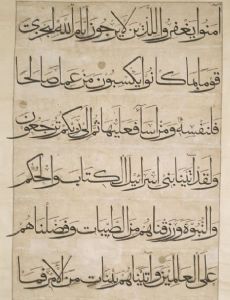 امنوا يغفروا للذين لا يرجون ايام الله ليجزى
قوما بما كانوا يكسبون من عمل صالحا
فلنفسه ومن اسا فعليها ثم الى ربكم ترجعون
ولقد اتينا بنى اسرائيل الكتاب والحكم
والنبوة ورزقناهم من الطيبات وفضلناهم
على العالمين واتيناهم بينات من الامر فما